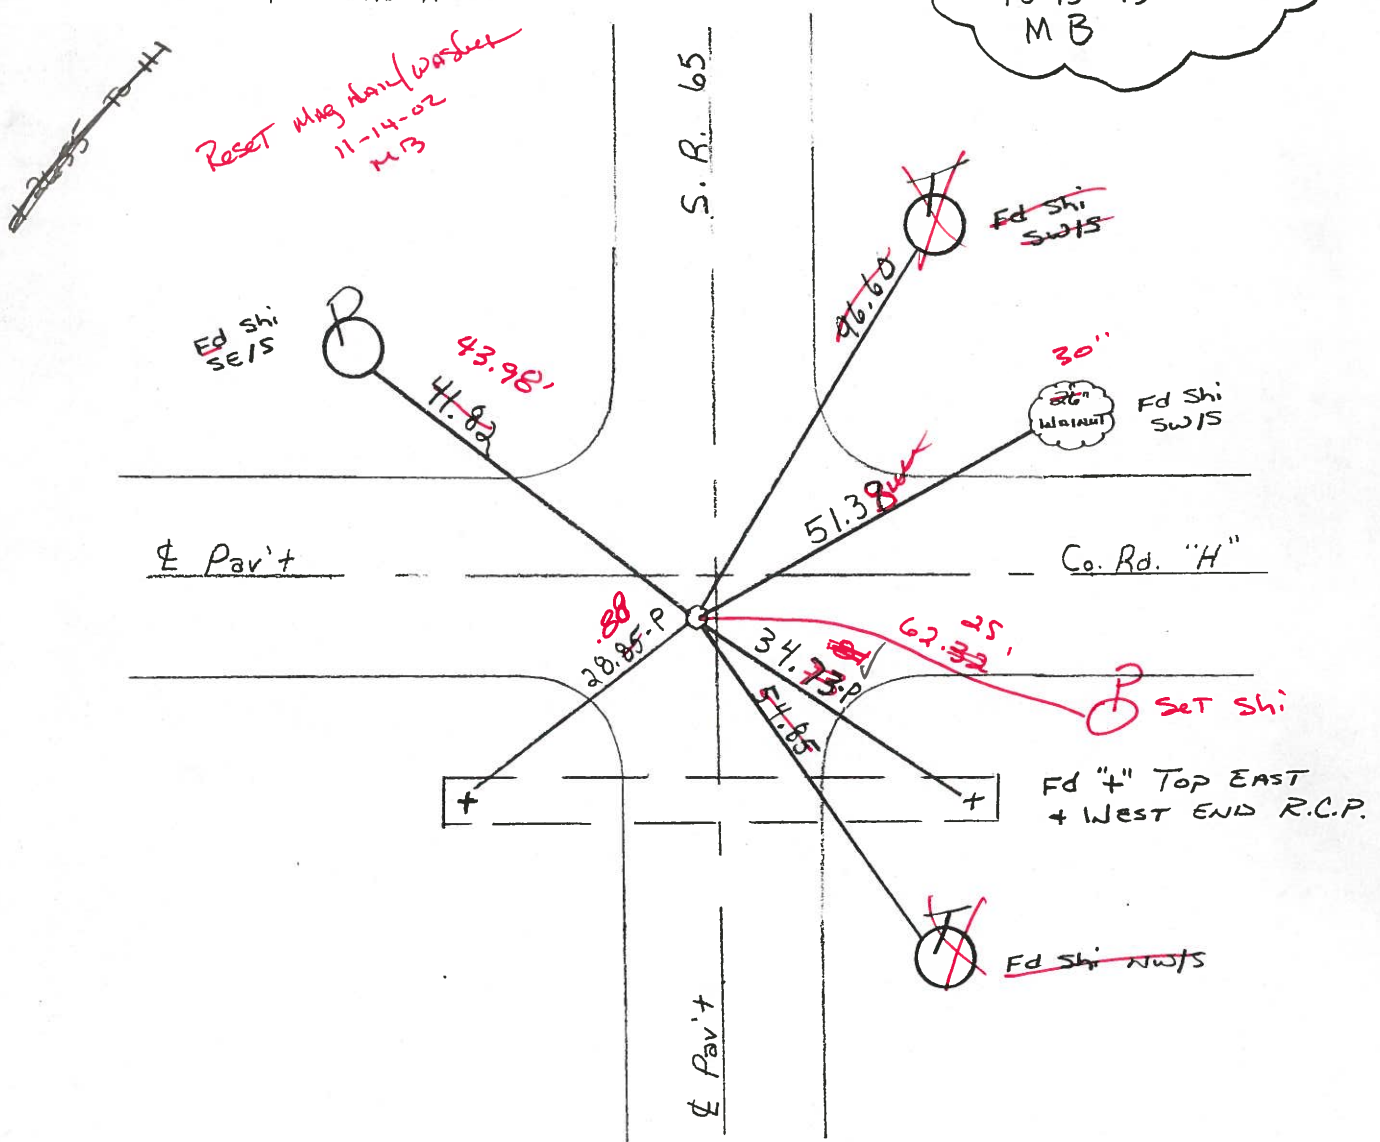 M B
TO H
Reset Mag Nail/Washer
11-14-02
MB
S. R. 65
T
Fd Shi
SW/S
96.60
P
Fd Shi
SE/S
43.98'
41.82
30"
26"
WALNUT
Fd Shi
SW/S
51.38
℄ Pav't
Co. Rd. "H"
.88
28.85-P
34.73-P
81
62.32
25'
54.85
P
SET Shi
+
+
Fd "+" TOP EAST
+ WEST END R.C.P.
T
Fd Shi NW/S
℄ Pav't